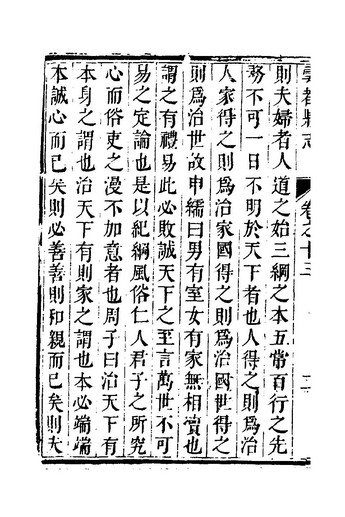 雩都縣志
卷之十三
則夫婦者人道之始三綱之本五常百行之先
務不可一日不明於天下者也人得之則爲治
人家得之則爲治家國得之則爲治國世得之
則爲治世故申繻曰男有室女有家無相瀆也
謂之有禮易此必敗誠天下之至言萬世不可
易之定論也是以紀綱風俗仁人君子之所究
心而俗吏之漫不加意者也周子曰治天下有
本身之謂也治天下有則家之謂也本必端端
本誠心而已矣則必善善則和親而已矣則夫